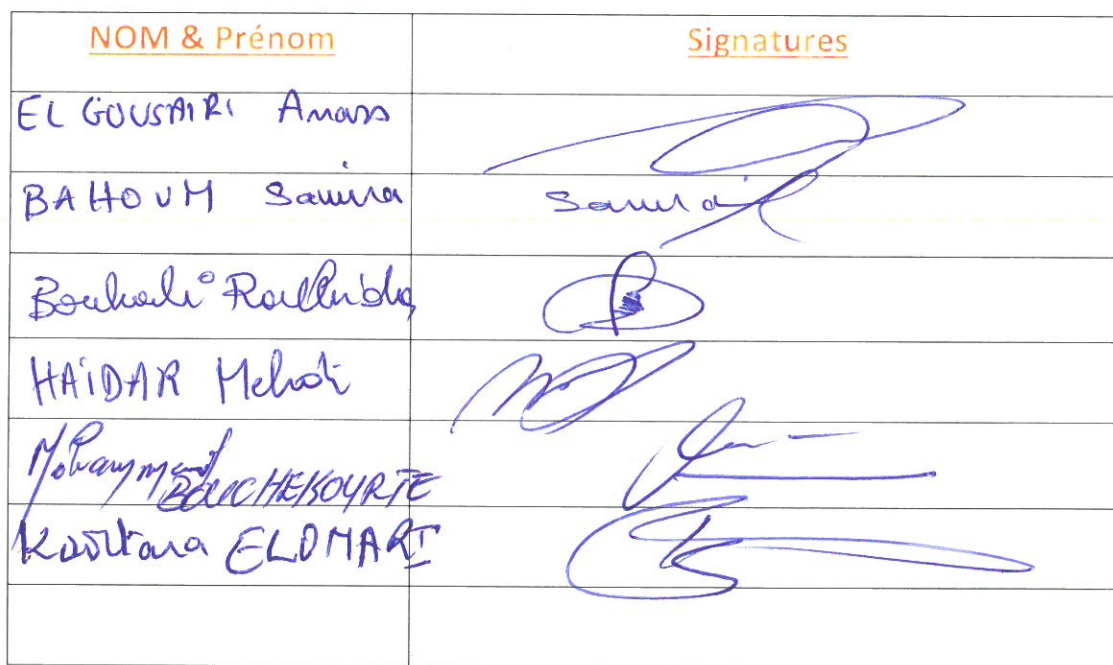 NOM & Prénom Signatures
EL GOUSAIRI Anass
BAHOUM Samira Samira
Bouhali
HAÏDAR Mehdi
Mohammed BOUCHEKOURTE
ELOMARI